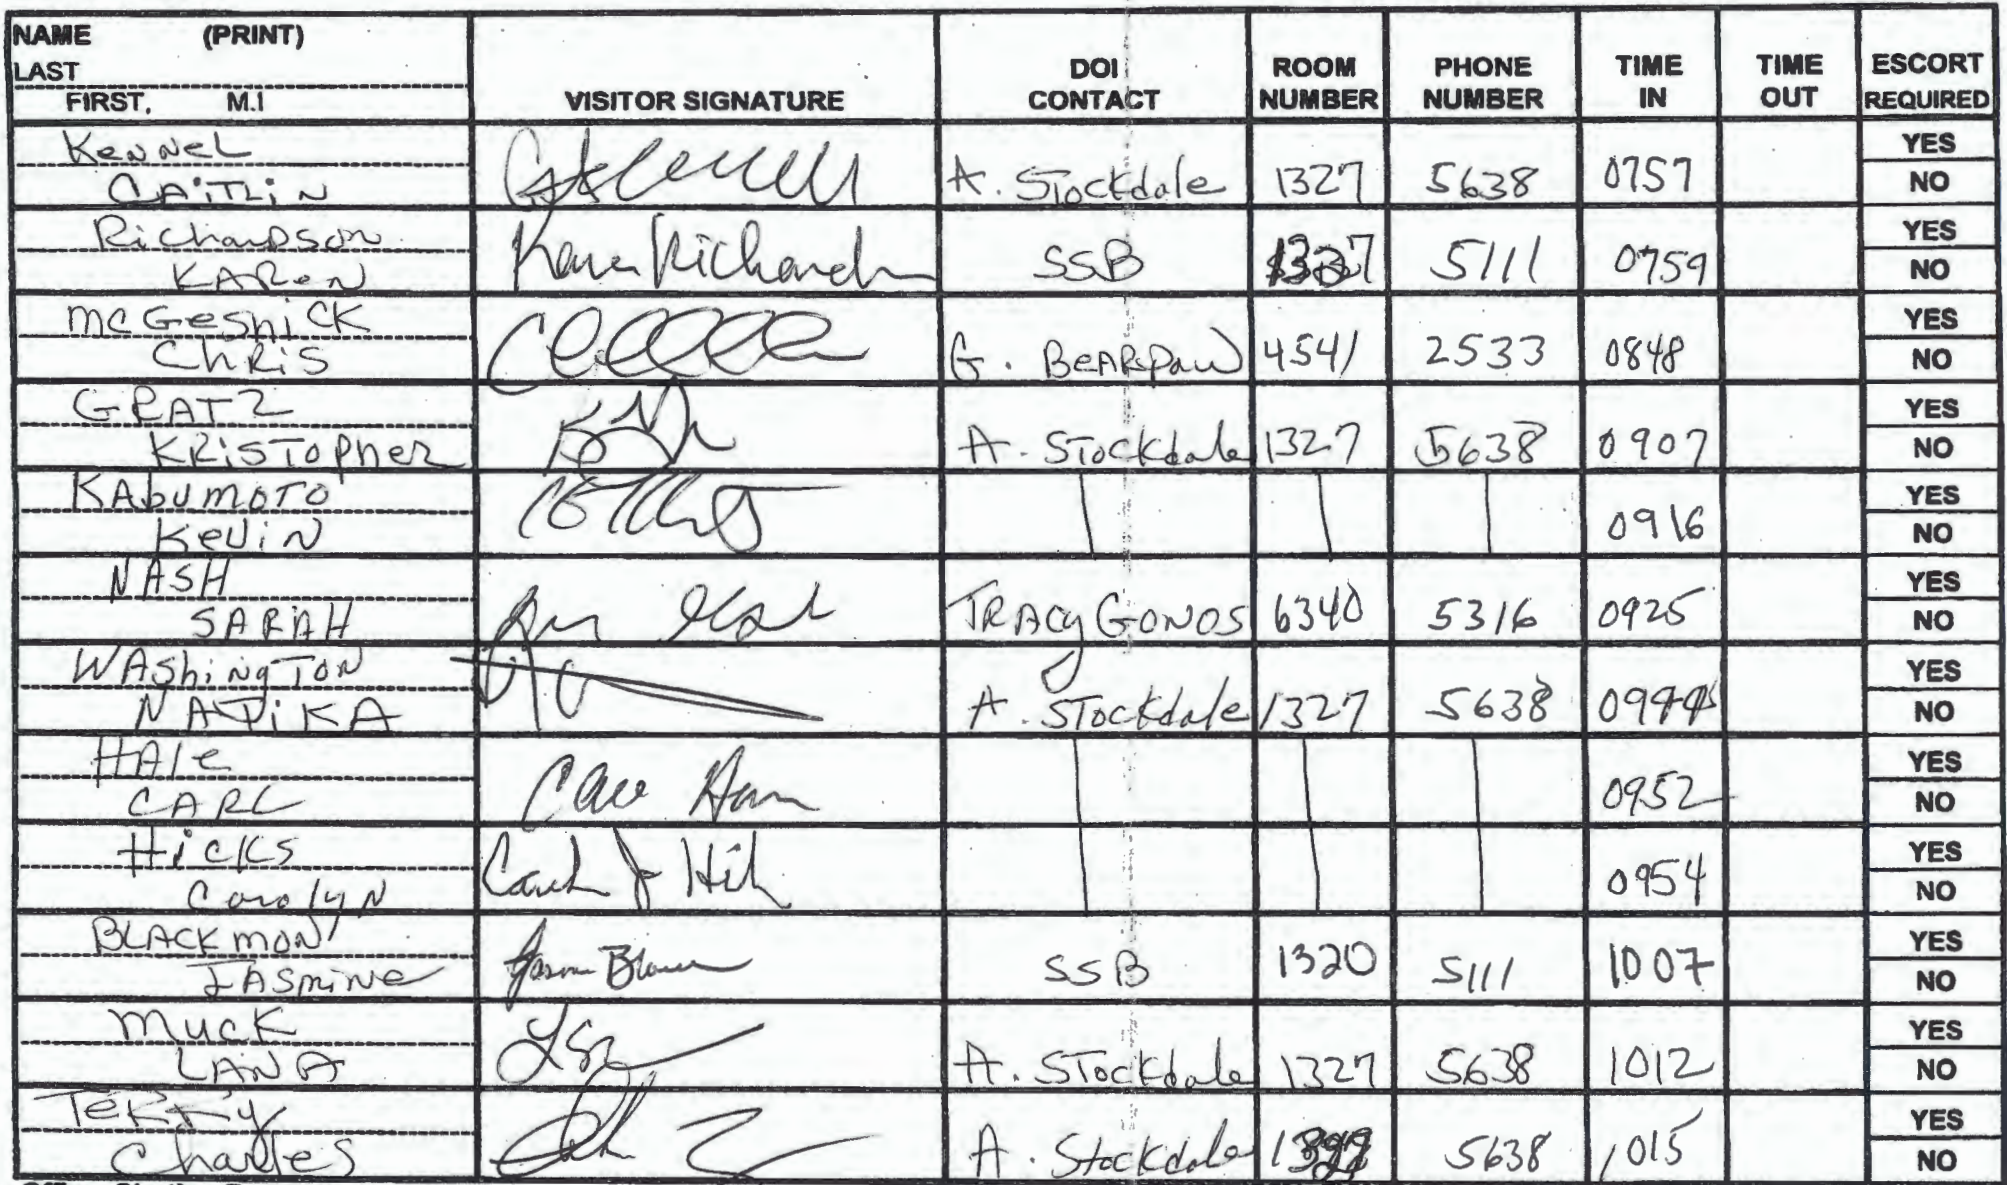 NAME (PRINT)
LAST
FIRST, M.I
VISITOR SIGNATURE
DOI CONTACT
ROOM NUMBER
PHONE NUMBER
TIME IN
TIME OUT
ESCORT REQUIRED
Kennel
CAiTLiN
A. Stockdale 1327 5638 0757
YES
NO
RichaRDSON
KAReN
Karen Richards
SSB 5111 0759
YES
NO
mcGeshiCK
ChRiS
G. BeARpaw 4541 2533 0848
YES
NO
GRATZ
KRiSTopher
A. Stockdale 1327 5638 0907
YES
NO
KAbumoTo
KeViN
0916
YES
NO
NASH
SARAH
TRACy GONOS 6340 5316 0925
YES
NO
WAShingTON
A. Stockdale 1327 5638
YES
NO
HAle
CARL
0952
YES
NO
HicKS
Carolyn
0954
YES
NO
BLACKmON
JASmiNe
SSB 1320 5111 1007
YES
NO
muck
LANA
A. STockdale 1327 5638 1012
YES
NO
TeRRy
Charles
A. Stockdale 5638 1015
YES
NO